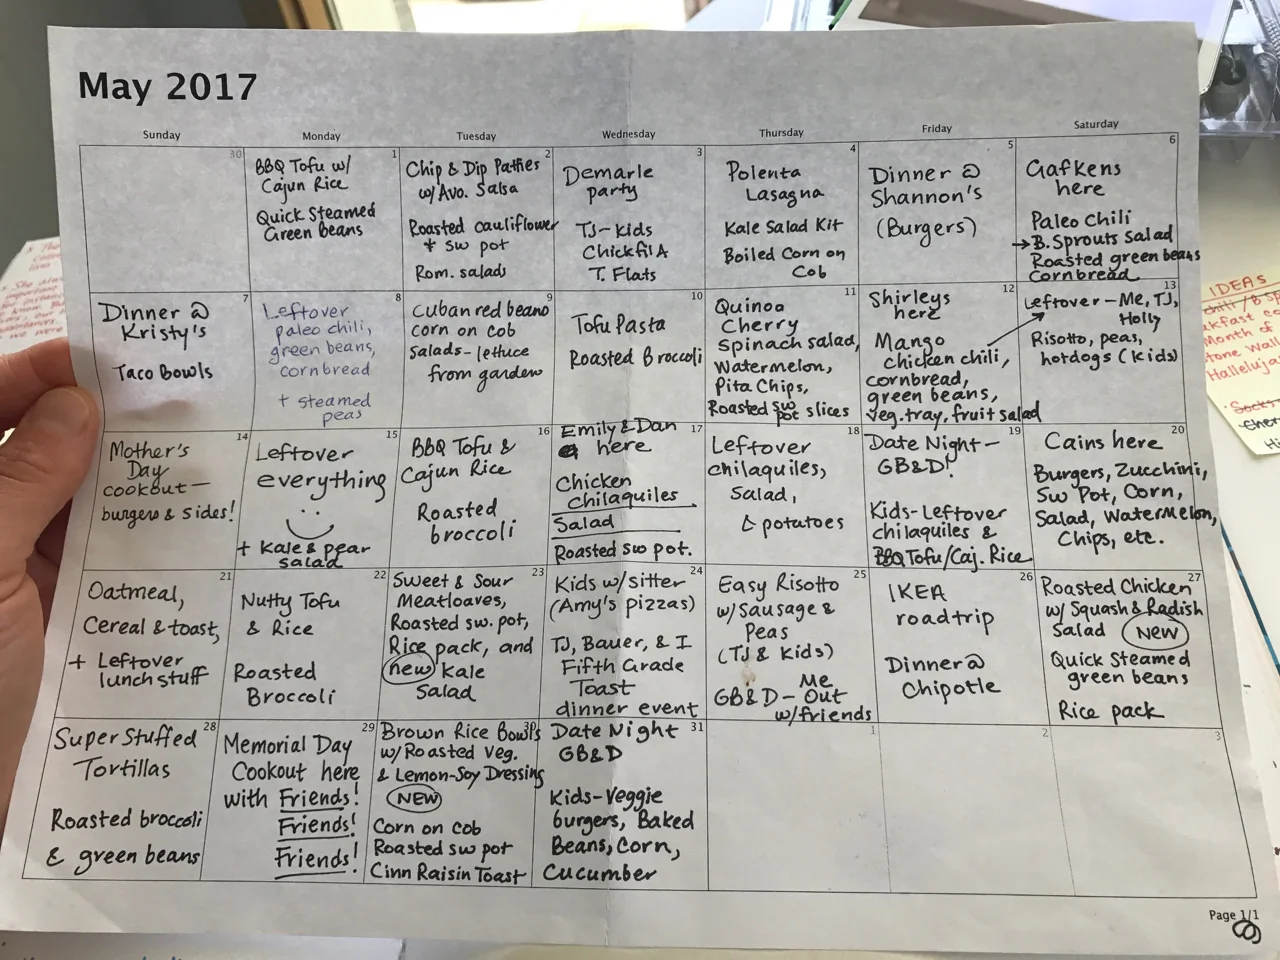 May 2017
Sunday
Monday
Tuesday
Wednesday
Thursday
Friday
Saturday
30
1
BBQ Tofu w/
Cajun Rice
Quick Steamed
Green beans
2
Chip & Dip Patties
w/Avo. Salsa
Roasted cauliflower
+ sw pot
Rom. salads
3
Demarle
party
TJ-kids
Chickfil A
T. Flats
4
Polenta
Lasagna
Kale Salad Kit
Boiled Corn on
Cob
5
Dinner @
Shannon's
(Burgers)
6
Gafkens
here
Paleo Chili
→B. Sprouts Salad
Roasted green beans
Cornbread
7
Dinner @
Kristy's
Taco Bowls
8
Leftover
paleo chili,
green beans,
cornbread
+ steamed
peas
9
Cuban red beans
corn on cob
Salads-lettuce
from garden
10
Tofu Pasta
Roasted Broccoli
11
Quinoa
Cherry
Spinach salad,
Watermelon,
Pita Chips,
Roasted sw
pot slices
12
Shirleys
here
Mango
chicken chili,
cornbread,
green beans,
veg. tray, fruit salad
13
Leftover - Me, TJ,
Holly
Risotto, peas,
hotdogs (Kids)
14
Mother's
Day
cookout—
burgers & sides!
15
Leftover
everything
+ Kale & pear
salad
16
BBQ Tofu &
Cajun Rice
Roasted
broccoli
17
Emily & Dan
here
Chicken
Chilaquiles
Salad
Roasted sw pot.
18
Leftover
chilaquiles,
salad,
potatoes
19
Date Night—
GB&D!
Kids-Leftover
chilaquiles &
BBQ Tofu/Caj. Rice
20
Cains here
Burgers, Zucchini,
Sw Pot, Corn,
Salad, Watermelon,
Chips, etc.
21
Oatmeal,
Cereal & toast,
+ Leftover
lunch stuff
22
Nutty Tofu
& Rice
Roasted
Broccoli
23
Sweet & Sour
Meatloaves,
Roasted sw. pot,
Rice pack, and
new Kale
Salad
24
Kids w/sitter
(Amy's pizzas)
TJ, Bauer, & I
Fifth Grade
Toast
dinner event
25
Easy Risotto
w/Sausage &
Peas
(TJ & Kids)
GB&D - Me
Out
w/friends
26
IKEA
roadtrip
Dinner @
Chipotle
27
Roasted Chicken
w/ Squash & Radish
Salad NEW
Quick Steamed
green beans
Rice pack
28
Super Stuffed
Tortillas
Roasted broccoli
& green beans
29
Memorial Day
Cookout here
with Friends!
Friends!
Friends!
30
Brown Rice Bowls
w/Roasted Veg.
& Lemon-Soy Dressing
NEW
Corn on cob
Roasted sw pot
Cinn Raisin Toast
31
Date Night
GB&D
Kids-Veggie
burgers, Baked
Beans, Corn,
Cucumber
1
2
3
Page 1/1
IDEAS
Month of
Hallelujah